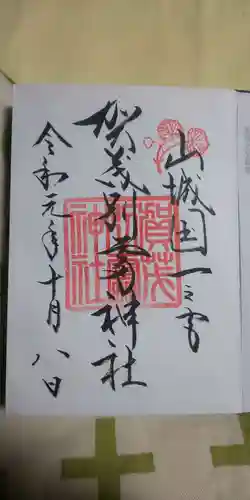 山城国一之宮
賀茂別雷神社
令和元年十月八日
賀茂
別雷
神社